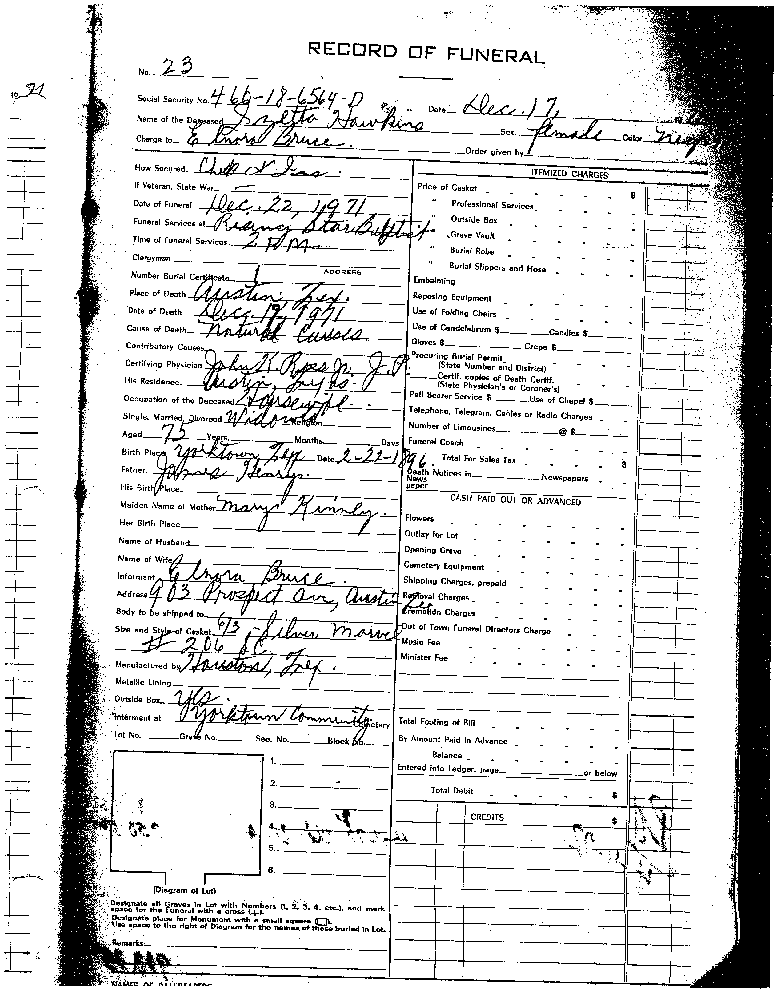 RECORD OF FUNERAL
No. 23
Social Security No. 466-18-6564-D Date Dec. 17,
Name of the Deceased Hawkins Sex female Color
Charge to Elnora Bruce. Order given by
How Secured.
If Veteran, State War —
Date of Funeral Dec. 22, 1971
Funeral Services at Rising Star Baptist
Time of Funeral Services 2 P.M.
Clergyman
Number Burial Certificate ADDRESS
Place of Death Austin, Tex.
Date of Death Dec. 1971
Cause of Death Natural Causes
Contributory Causes
Certifying Physician John J. P.
His Residence. Austin, Texas.
Occupation of the Deceased Housewife
Single, Married, Divorced Widowed Religion
Aged 75 Years Months Days
Birth Place Yorktown, Tex Date 2-22-1896
Father. James Henry.
His Birth Place
Maiden Name of Mother Mary Kinnley.
Her Birth Place
Name of Husband
Name of Wife
Informant Elnora Bruce.
Address 903 Prospect Ave, Austin Tex
Body to be shipped to
Size and Style of Casket 6/3, - Silver Marvel
# 206
Manufactured by Houston, Tex.
Metallic Lining
Outside Box Yes.
Interment at Yorktown Community Cemetery
Lot No. Grave No. Sec. No. Block No.
1.
2.
3.
4.
5.
6.
(Diagram of Lot)
Designate all Graves in Lot with Numbers (1, 2, 3, 4, etc.), and mark
space for the Funeral with a cross (+).
Designate place for Monument with a small square
Use space to the right of Diagram for the names of those buried in Lot.
Remarks:
ITEMIZED CHARGES
Price of Casket $
" Professional Services
" Outside Box
" Grave Vault
" Burial Robe
" Burial Slippers and Hose
Embalming
Reposing Equipment
Use of Folding Chairs
Use of Candelabrum $ Candles $
Gloves $ Crepe $
Procuring Burial Permit
(State Number and District)
Certif. copies of Death Certif.
(State Physician's or Coroner's)
Pall Bearer Service $ Use of Chapel $
Telephone, Telegram, Cables or Radio Charges
Number of Limousines @ $
Funeral Coach
Total For Sales Tax $
Death Notices in Newspapers
News
paper
CASH PAID OUT OR ADVANCED
Flowers
Outlay for Lot
Opening Grave
Cemetery Equipment
Shipping Charges, prepaid
Removal Charges
Cremation Charges
Out of Town Funeral Directors Charge
Music Fee
Minister Fee
Total Footing of Bill
By Amount Paid In Advance
Balance
Entered into Ledger, page or below
Total Debit $
CREDITS $